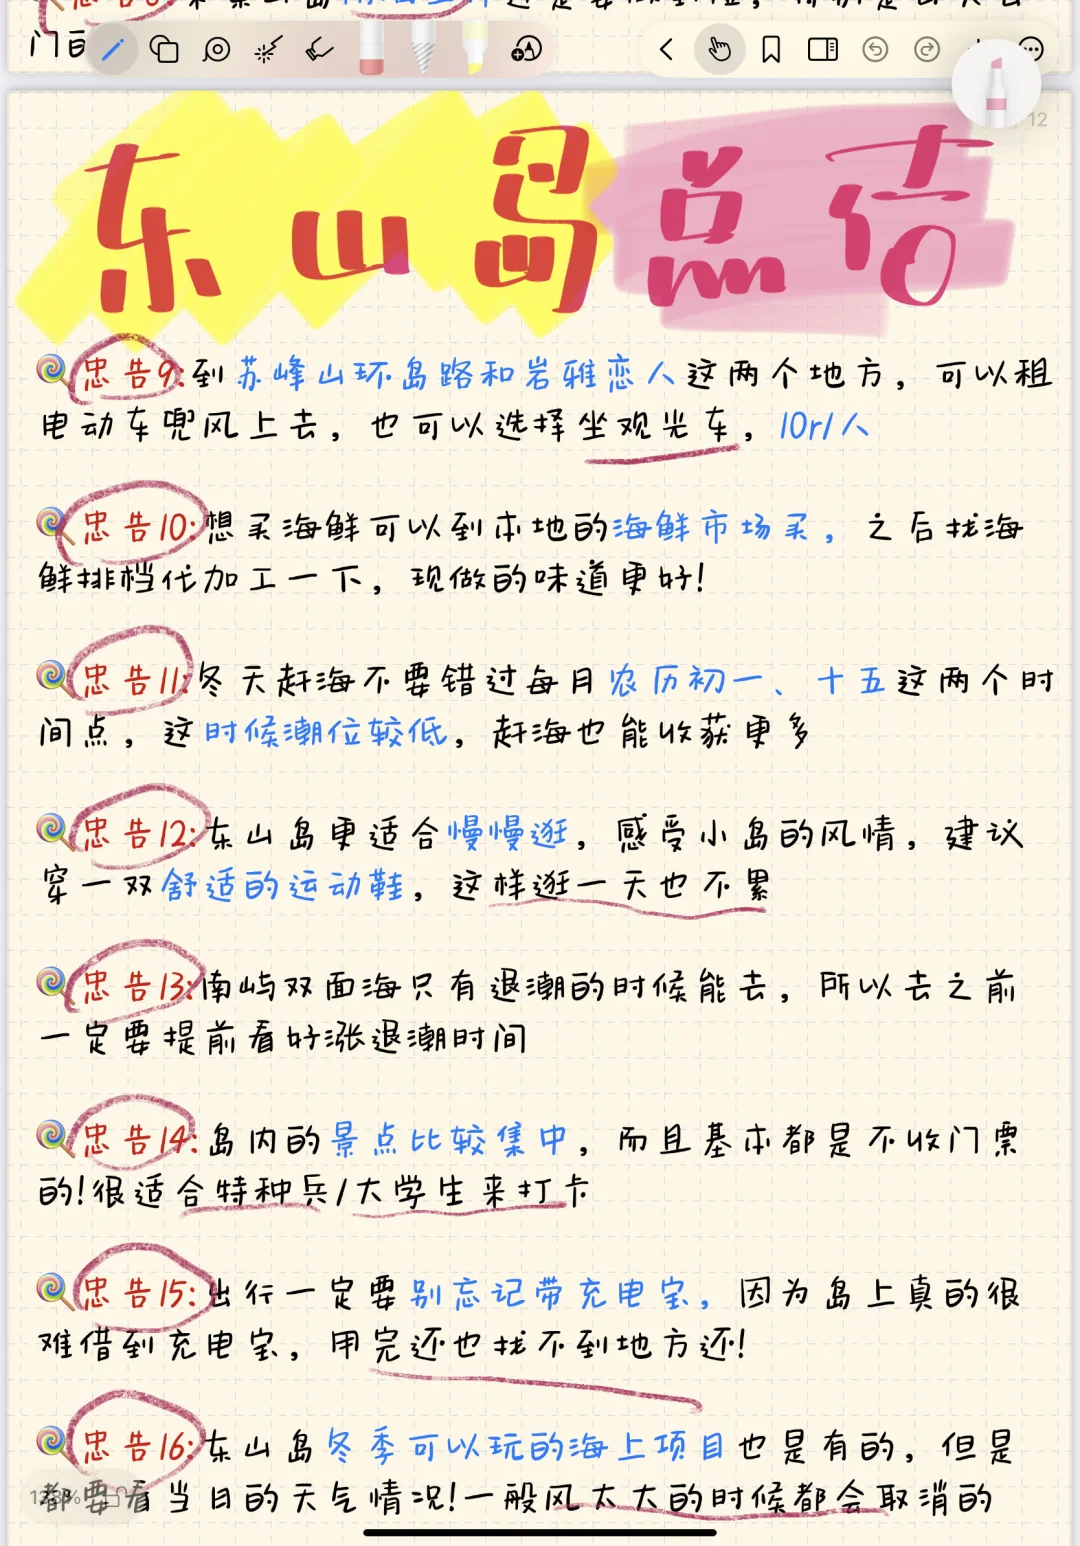 门
12
东山岛总结
忠告9:到苏峰山环岛路和岩雅恋人这两个地方，可以租
电动车兜风上去，也可以选择坐观光车，10r/人
忠告10:想买海鲜可以到本地的海鲜市场买，之后找海
鲜排档代加工一下，现做的味道更好!
忠告11:冬天赶海不要错过每月农历初一、十五这两个时
间点，这时候潮位较低，赶海也能收获更多
忠告12:东山岛更适合慢慢逛，感受小岛的风情，建议
穿一双舒适的运动鞋，这样逛一天也不累
忠告13:南屿双面海只有退潮的时候能去，所以去之前
一定要提前看好涨退潮时间
忠告14:岛内的景点比较集中，而且基本都是不收门票
的!很适合特种兵/大学生来打卡
忠告15:出行一定要别忘记带充电宝，因为岛上真的很
难借到充电宝，用完还也找不到地方还!
忠告16:东山岛冬季可以玩的海上项目也是有的，但是
都要看当日的天气情况!一般风太大的时候都会取消的